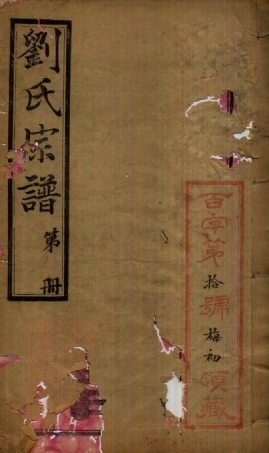 劉氏宗譜
第 冊
百字第拾號梅初領藏